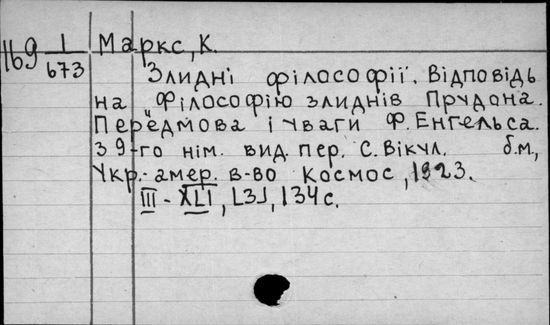 І169 1/673 Маркс, К.
Злидні філософії. Відповідь
на Філософію злиднів Прудона.
Передмова і уваги Ф. Енгельса.
З 9-го нім. вид. пер. С. Вікул. б.м,
Укр.-амер. в-во Космос, 1923.
III - XLI, [3], 134 с.